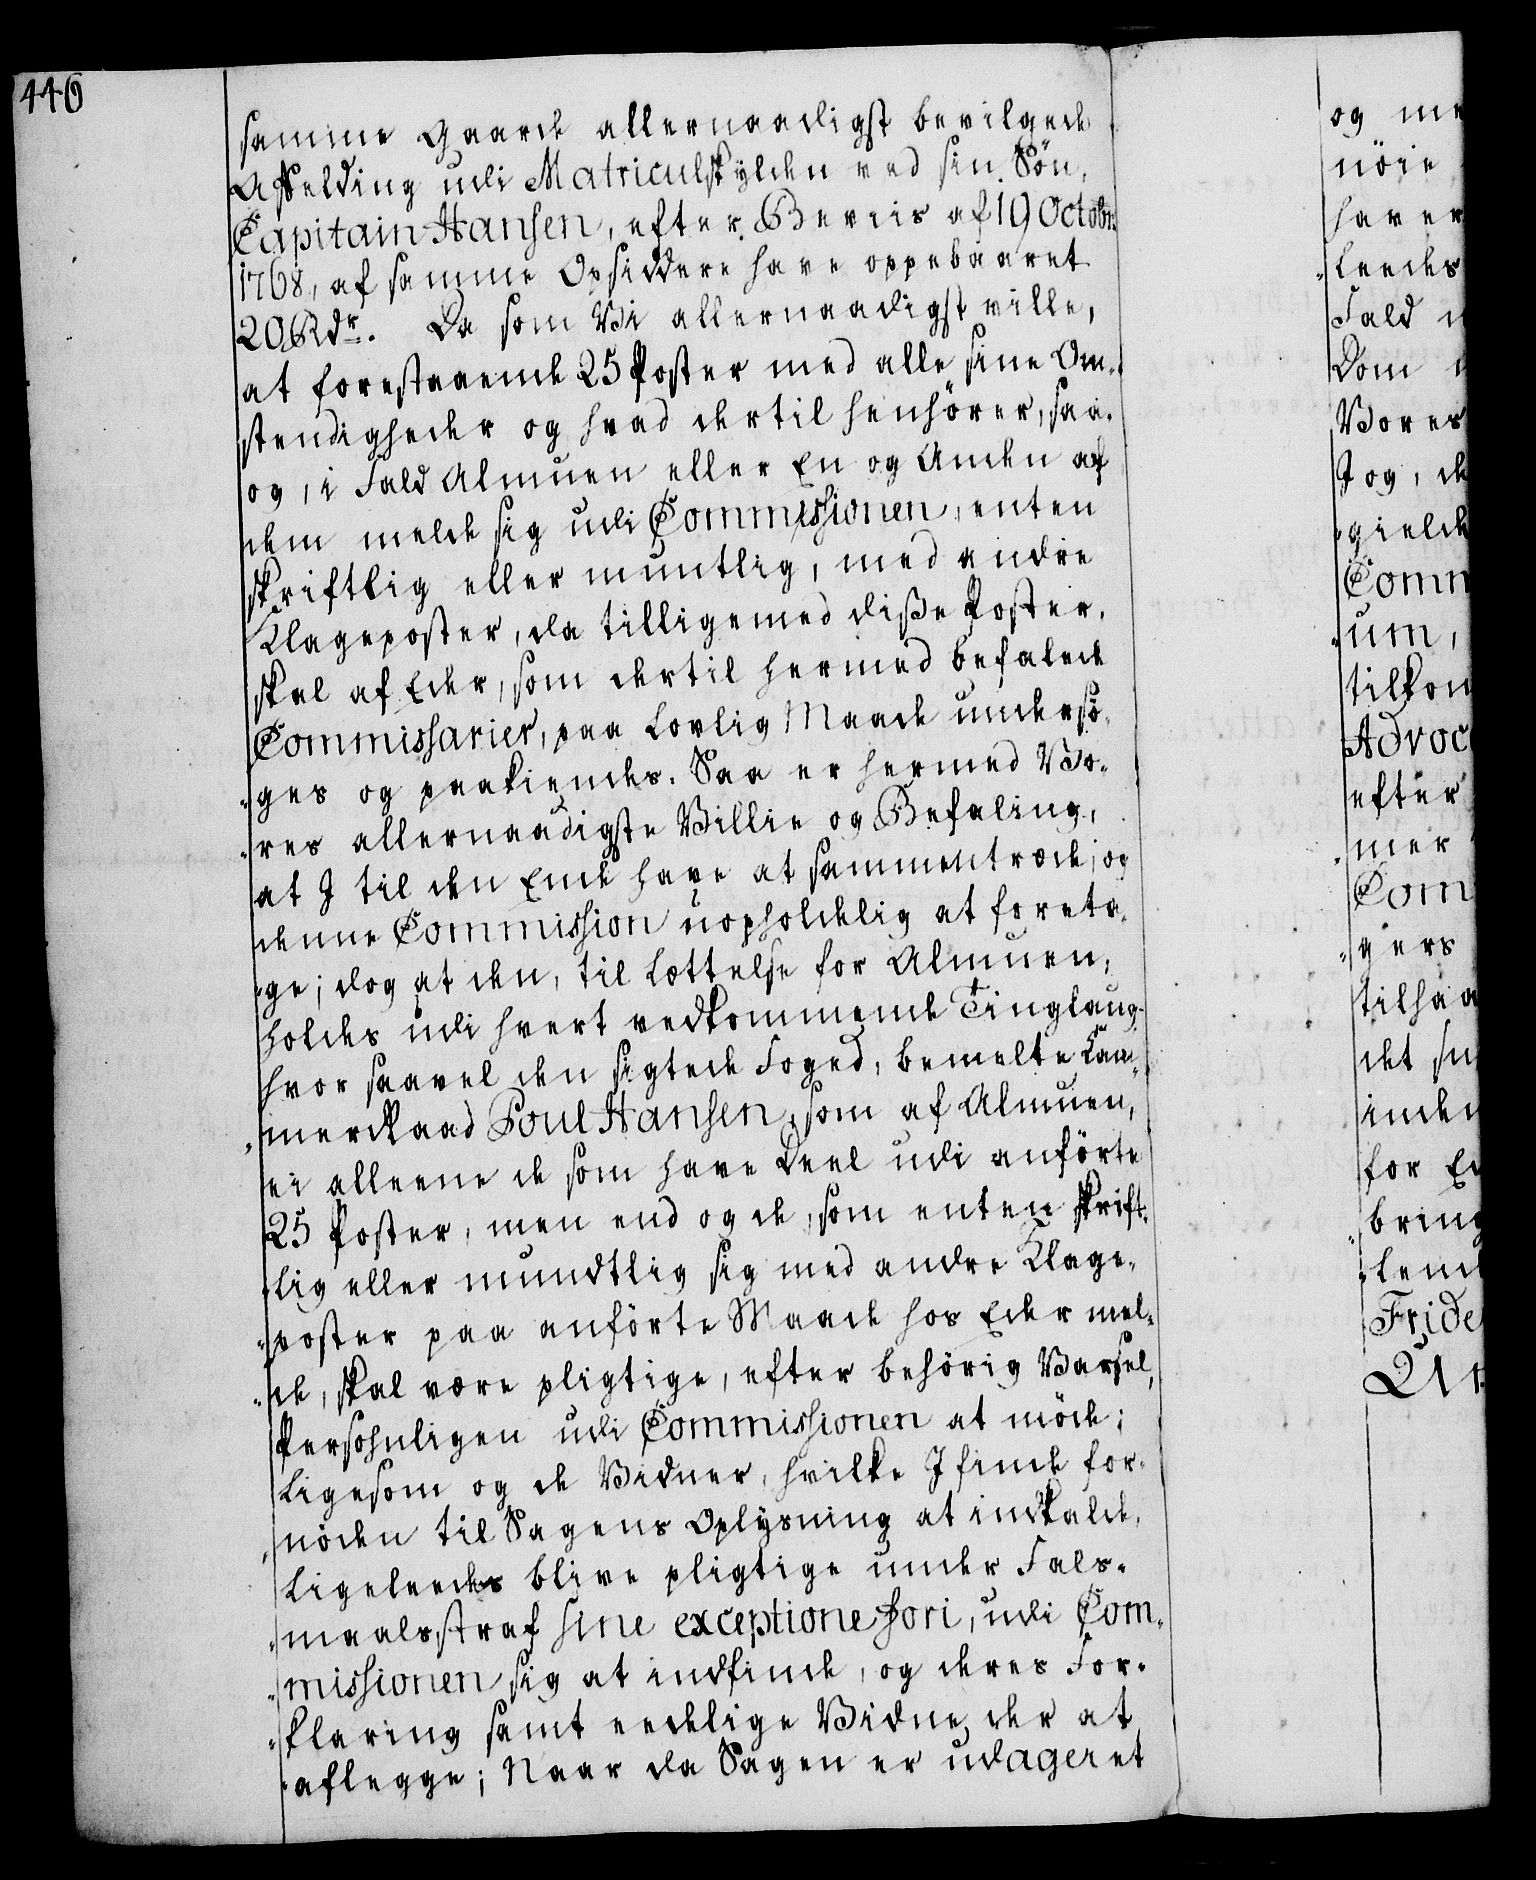 446
samme Gaarde allernaadigst bevilgede
Affelding udi Matriculskylden ved sin Søn,
Capitain Hansen, efter Beviis af 19 Octobr.
1768, af samme Opsiddere have oppebaaret
20 Rdr. Da som Vi allernaadigst ville,
at forestaaende 25 Poster med alle sine Om-
stendigheder og hvad dertil henhører, saa
og, i Fald Almuen eller En og Anden af
dem melde sig udi Commissionen, enten
skriftlig eller muntlig, med andre
Klageposter, da tilligemed diße Poster,
skal af Eder, som dertil hermed befalede
Commissarier, paa Lovlig Maade undersø-
ges og paakiendes. Saa er hermed Vo-
res allernaadigste Villie og Befaling,
at I til den Ende have at sammentræde, og
denne Commission uopholdelig at foreta-
ge; dog at den, til Lættelse for Almuen,
holdes udi hvert vedkommende Tinglaug-
hvor saavel den sigtede Foged, bemelte Cam-
merraad Poul Hansen, som af Almuen,
ei alleene de som have Deel udi anførte
25 Poster, men end og de, som enten skrift-
lig eller mundtlig sig med andre Klage-
poster paa anførte Maade hos Eder mel-
de, skal være pligtige, efter behörig Varsel,
Persohnligen udi Commissionen at möde;
Ligesom og de Vidner, hvilke I finde for-
nöden til Sagens Oplysning at indkalde,
Ligeleedes blive pligtige under Fals-
maalsstraf sine exceptione fori, udi Com-
missionen sig at indfinde, og deres For-
klaring samt eedlige Vidne der at
aflegge; Naar da Sagen er udageret
og me
nöie
haver
leedes
Fald
Dom
Vores
I og, de
gielde
Comm
um,
tilkom
Advoc
efter
mer
Com
gers
tilhaa
det
inden
for
bring
lend
Fride